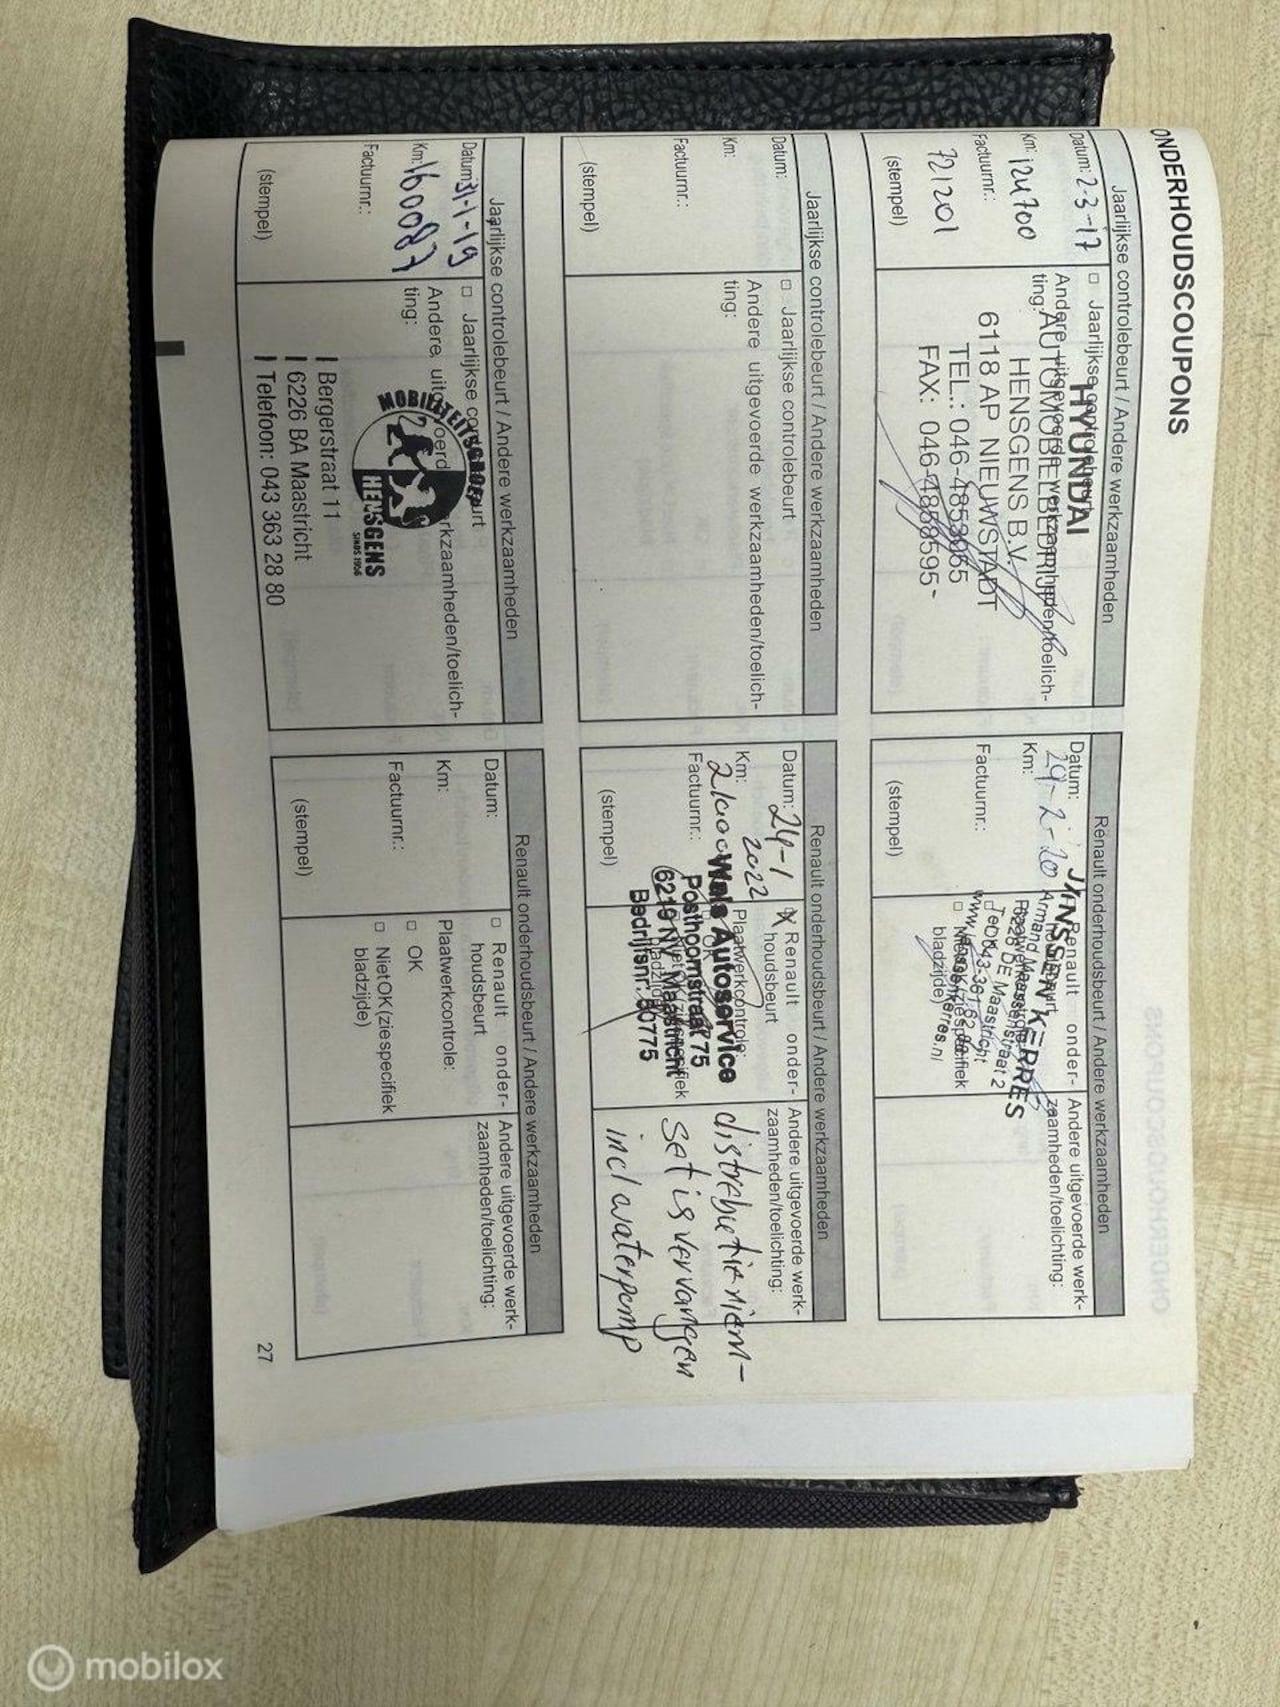 ONDERHOUDSCOUPONS
Jaarlijkse controlebeurt / Andere werkzaamheden
Datum: 2-3-17
□ Jaarlijkse controlebeurt
Km: 124700
Andere uitgevoerde werkzaamheden/toelich-
ting:
Factuurnr.:
721201
(stempel)
HYUNDAI
AUTOMOBIELBEDRIJF
HENSGENS B.V.
6118 AP NIEUWSTADT
TEL.: 046-4853065
FAX: 046-4858595-
Jaarlijkse controlebeurt / Andere werkzaamheden
Datum:
□ Jaarlijkse controlebeurt
Km:
Andere uitgevoerde werkzaamheden/toelich-
ting:
Factuurnr.:
(stempel)
Jaarlijkse controlebeurt / Andere werkzaamheden
Datum: 31-1-19
□ Jaarlijkse controlebeurt
Km: 160087
Andere uitgevoerde werkzaamheden/toelich-
ting:
Factuurnr.:
(stempel)
MOBILITEITSGROEP
HENSGENS
SINDS 1956
Bergerstraat 11
6226 BA Maastricht
Telefoon: 043 363 28 80
Renault onderhoudsbeurt / Andere werkzaamheden
Datum:
29-2-20
Km:
Factuurnr.:
(stempel)
□ Renault onder-
houdsbeurt
Plaatwerkcontrole:
□ OK
□ NietOK(ziespecifiek
bladzijde)
JANSSEN KERRES
Armand Maassenstraat 2
6228 DE Maastricht
Andere uitgevoerde werk-
zaamheden/toelichting:
Renault onderhoudsbeurt / Andere werkzaamheden
Datum: 24-1
2022
Km:
Factuurnr.:
(stempel)
X Renault onder-
houdsbeurt
Plaatwerkcontrole:
□ OK
□ NietOK(ziespecifiek
bladzijde)
Wals Autoservice
Posthoornstraat 75
6219 NV Maastricht
Bedrijfsnr. 80775
Andere uitgevoerde werk-
zaamheden/toelichting:
distrebutieriem-
set is vervangen
incl waterpomp
Renault onderhoudsbeurt / Andere werkzaamheden
Datum:
Km:
Factuurnr.:
(stempel)
□ Renault onder-
houdsbeurt
Plaatwerkcontrole:
□ OK
□ NietOK(ziespecifiek
bladzijde)
Andere uitgevoerde werk-
zaamheden/toelichting:
27
mobilox